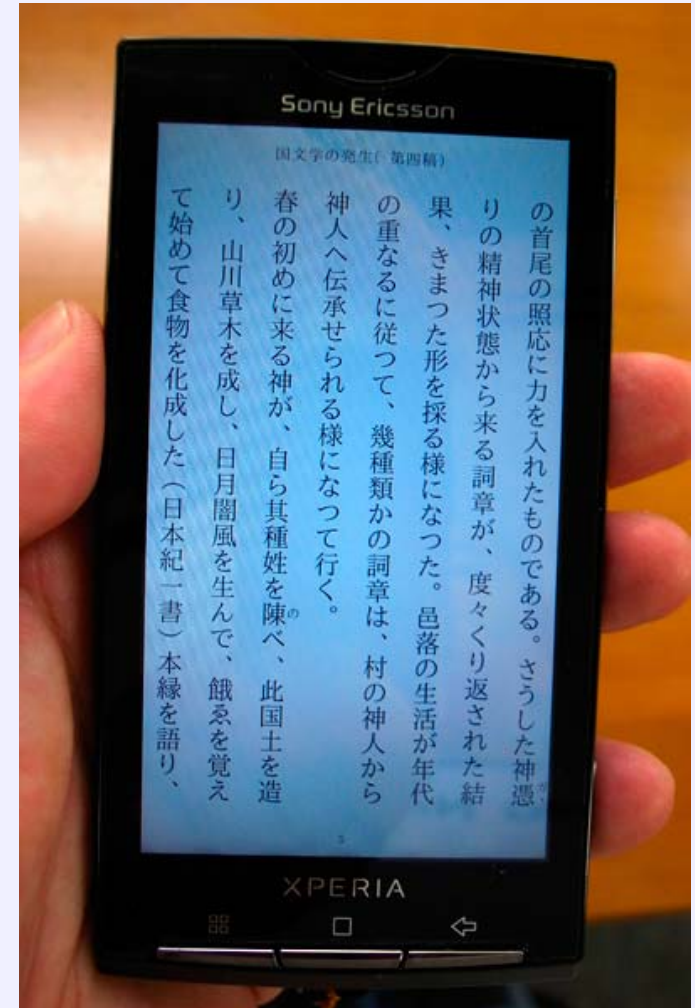 Sony Ericsson
国文学の発生(第四稿)
の首尾の照応に力を入れたものである。さうした神憑
りの精神状態から来る詞章が、度々くり返された結
果、きまつた形を採る様になつた。邑落の生活が年代
の重なるに従つて、幾種類かの詞章は、村の神人から
神人へ伝承せられる様になつて行く。
春の初めに来る神が、自ら其種姓を陳べ、此国土を造
り、山川草木を成し、日月闇風を生んで、餓ゑを覚え
て始めて食物を化成した(日本紀一書)本縁を語り、
5
XPERIA